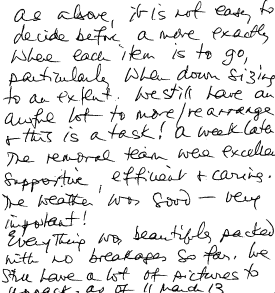 as above, it is not easy to
decide before a more exactly
where each item is to go,
particularly when down sizing
to an extent. We still have an
awful lot to more/rearrange
& this is a task! a week later
The removal team were excellent
supportive, efficient & caring.
The weather was good – very
important!
Everything was beautifully packed
with no breakages so far. We
still have a lot of pictures to
unpack, as of 11 March 13